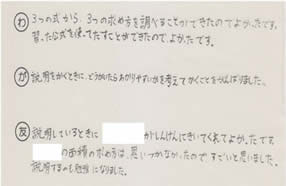 わ 3つの式から、3つの求め方を調べることができたのでよかったです。
習った公式を使ってたすことができたので、よかったです。
が 説明をかくときに、どうかいたらわかりやすいかを考えてかくことをがんばりました。
友 説明しているときに がしんけんにきいてくれてよかったです。
の面積の求め方は、思いつかなかったのですごいと思いました。
説明するのも勉強になりました。